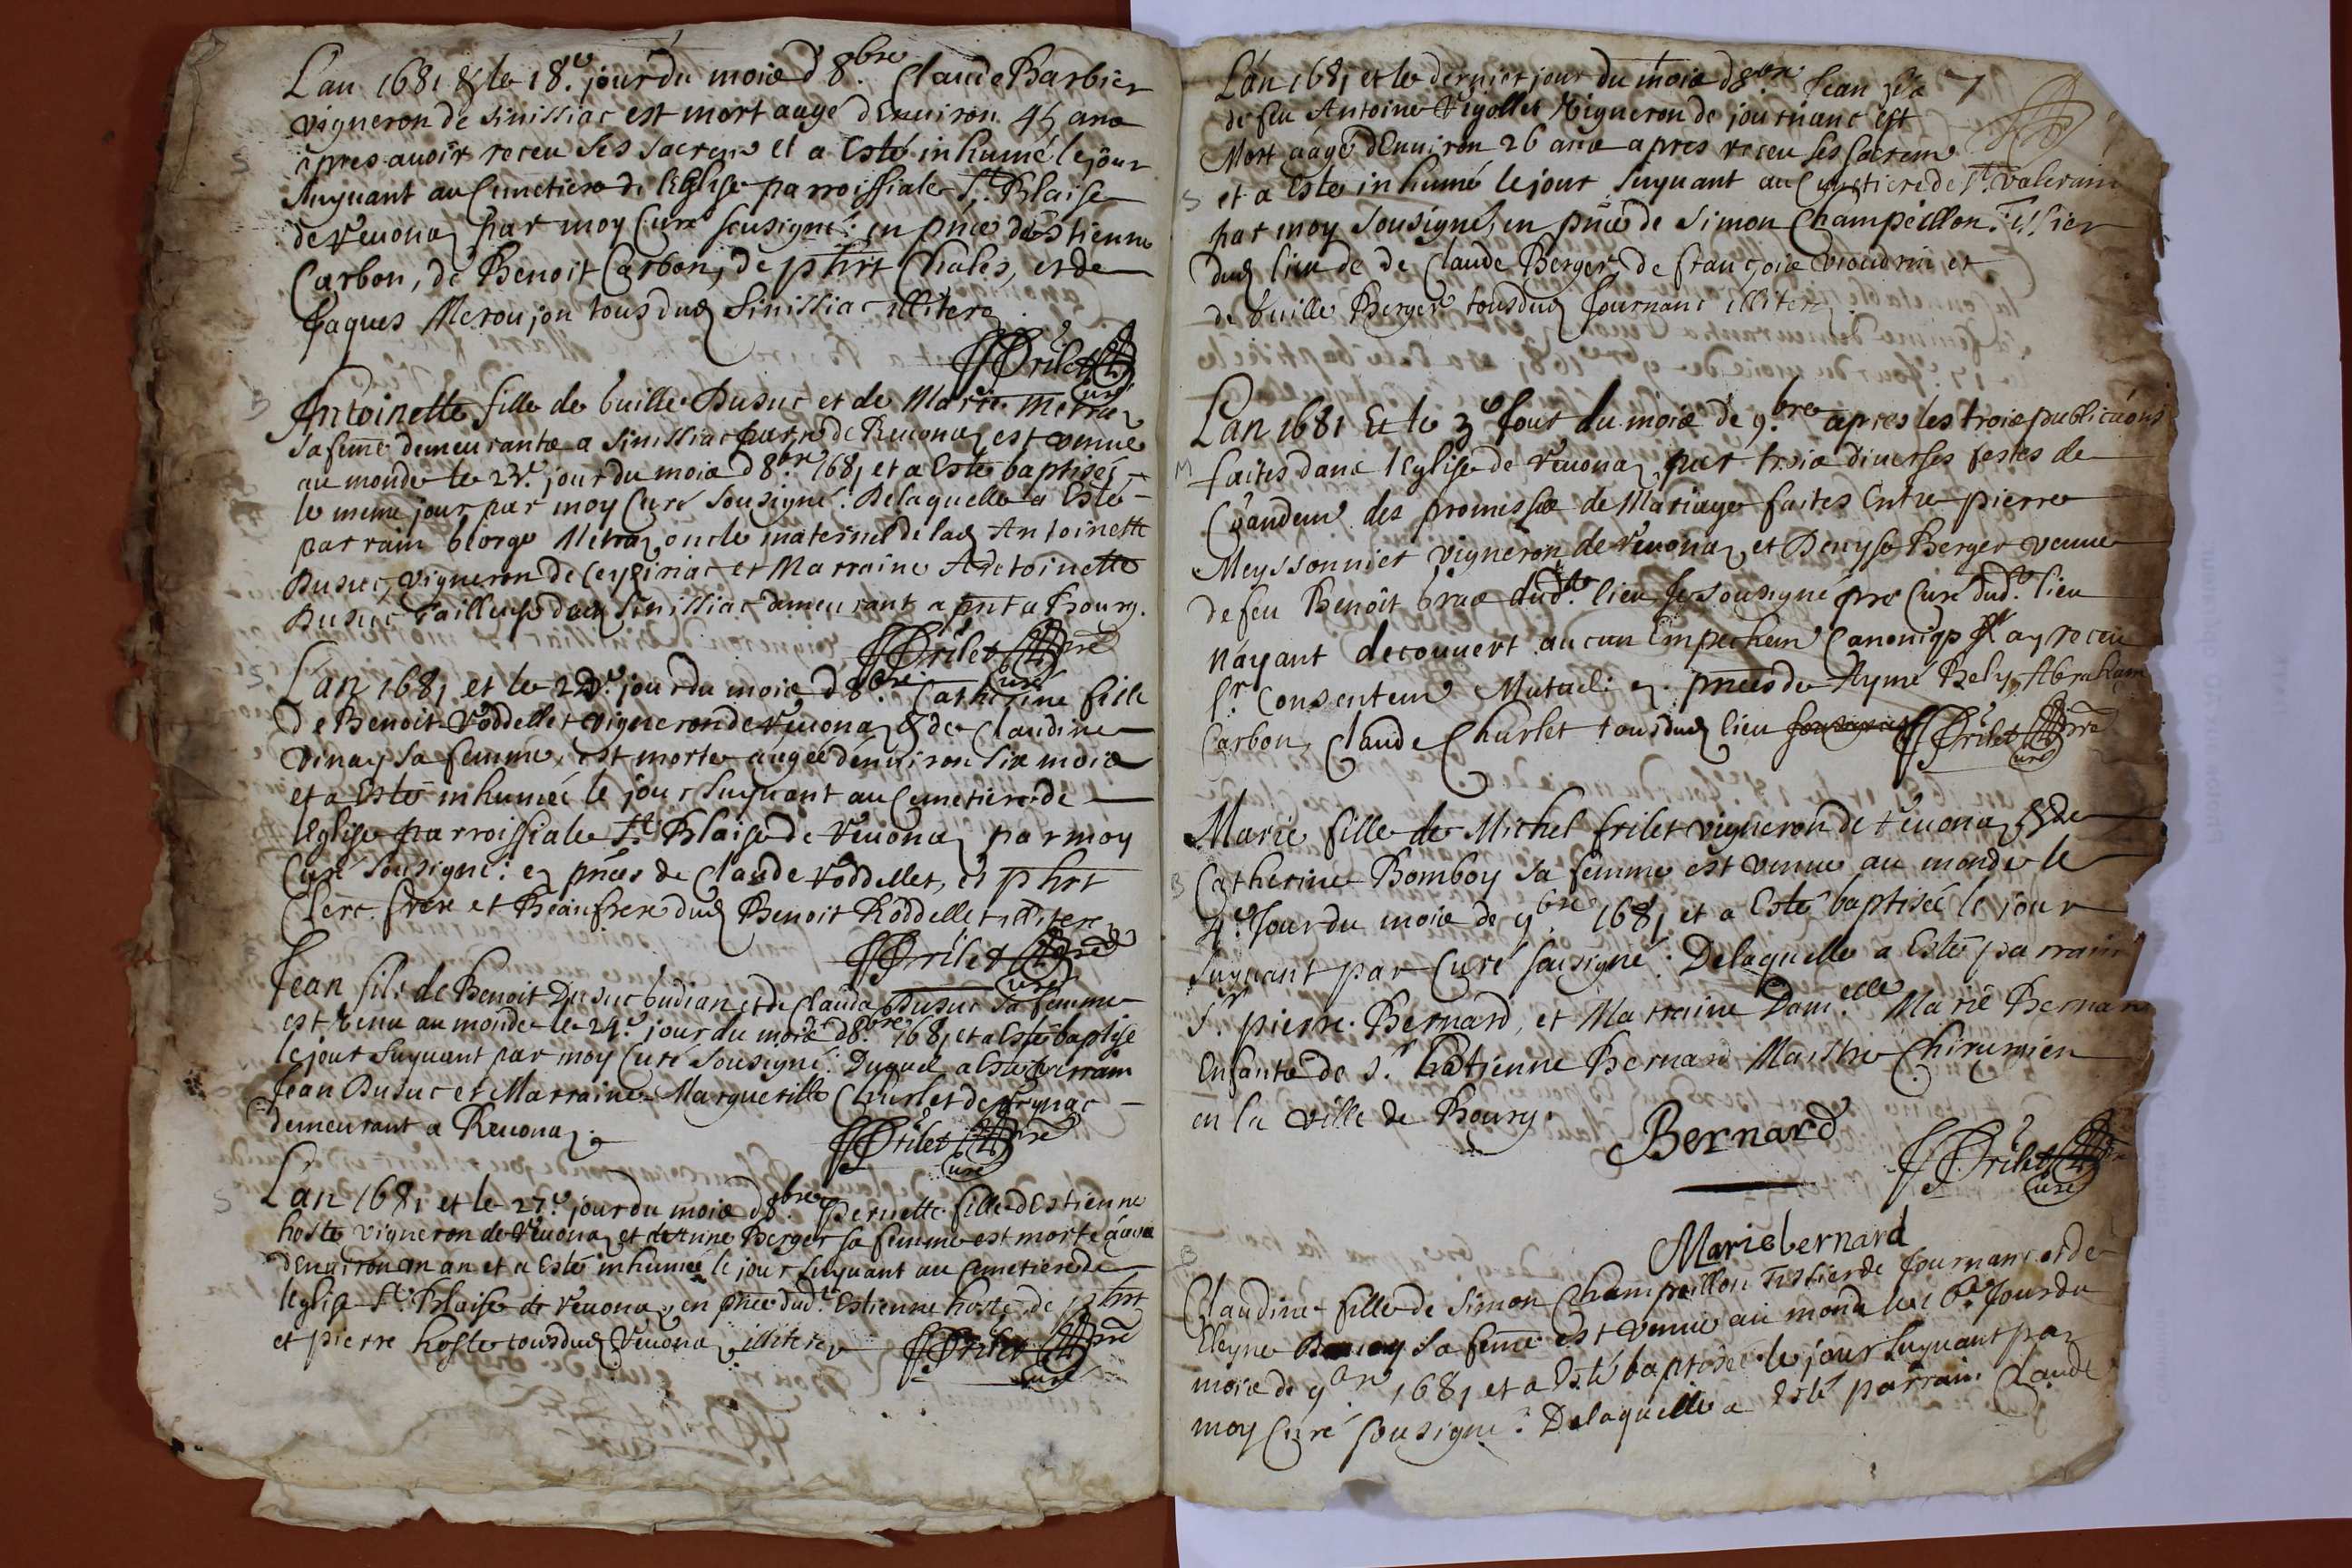 L'an 1681 & le 18.e jour du mois d'8.bre Claude Barbier
vigneron de Sinissiac est mort aagé d'Enuiron 45 ans
apres auoir receu ses sacrem et a Esté inhumé le jour
suyuant au Cimetiere de l'Eglise parroissiale St. Blaise
de Reuona par moy Curé sousigné: en pñce d'Estienne
Carbon, de Benoit Carbon, de phrt Chales, et de
Jaques Meroujon tous dud Sinissiac illiterez
JFrilet
Curé
B
Antoinette fille de Guille Dusuc et de Marie Metra
sa feme demeurants a Sinissiac parr.e de Reuona est venue
au monde le 23.e jour du mois d'8.bre 1681 et a Esté baptiseé
le meme jour par moy Curé sousigné. Delaquelle a Esté
parrain George Metra oncle maternel de lad Antoinette
Dusuc, vigneron de Ceyziriac et Marraine Antoinette
Dusuc Tailleuse dud Sinissiac demeurant a pnt a Bourg.
JFrilet pre
Curé
S
L'an 1681 et le 22.e jour du mois d'8.bre Catherine fille
de Benoit Roddellet vigneron de Reuona & de Claudine
Vinay sa femme, est morte aageé d'enuiron six mois
et a Esté inhumeé le jour suyuant au Cimetiere de
l'Eglise parroissiale St. Blaise de Reuona par moy
Curé sousigné: en pñces de Claude Roddellet, et phrt
Clerc frere et Beaufrere dud Benoit Roddellet illiterez
JFrilet pre
Curé
Jean fils de Benoit Dusuc Gudian et de Clauda Dusuc sa femme
est venu au monde le 24.e jour du mois d'8.bre 1681 et a Esté baptisé
le jour suyuant par moy Curé sousigné. Duquel a Esté parrain
Jean Dusuc et Marraine Marguerille Churlet de
demeurant a Reuona.
JFrilet pre
Curé
S
L'an 1681 et le 27.e jour du mois d'8.bre Pernette fille d'Estienne
hoste vigneron de Reuona et de Anne Berger sa femme est morte aageé
d'Enuiron un an et a Esté inhumeé le jour suyuant au Cimetiere de
l'eglise St. Blaise de Reuona, en pñce dud. Estienne hoste de phrt
et pierre hoste tous dud Reuona illiterez
JFrilet pre
Curé
7
L'an 1681 et le dernier jour du mois d'8.bre Jean fils
de feu Antoine Vigollet Vigneron de journanc est
Mort aagé d'Enuiron 26 ans apres receu ses sacrem
S
et a Esté inhumé le jour suyuant au Cimetiere de St. Valerain
par moy sousigné, en pñce de Simon Champeillon Tissier
dud lieu de de Claude Berger, de françois et
de Guille Berger tous dud Journanc illiterez.
L'an 1681 Et le 3.e Jour du mois de 9.bre apres les trois publicãons
M
faites dans l'Eglise de Reuona par trois diuerses festes de
des promesses de Mariage faites Entre pierre
Meyssonnier vigneron de Reuona, et Denyse Berger veuue
de feu Benoît Gras dud. lieu Je sousigné pre Curé dud. lieu
n'ayant decouuert aucun Empechem Canoniqs ay receu
lr. Consentem Mutuel: en pñces de Aymé Rely, Abraham
Carbon, Claude Churlet tous dud lieu
JFrilet pre
Curé
Marie fille de Michel frilet vigneron de Reuona & de
B
Catherine Bomboy sa femme est venue au monde le
4.e Jour du mois de 9.bre 1681 et a Esté baptiseé le jour
suyuant par Curé sousigné: Delaquelle a Esté parrain
Sr. pierre Bernard, et Marraine Dam.elle Marie Bernard
Enfants de Sr. Estienne Bernard Maistre Chirurgien
en la ville de Bourg.
Bernard
JFrilet pre
Curé
Marie bernard
B
Claudine fille de Simon Champeillon Tissier de Journanc et de
Eleyne sa feme est venue au monde le 16.e Jour du
mois de 9.bre 1681 et a Esté baptiseé le jour suyuant par
moy Curé sousigné: Delaquelle a Esté parrain Claude